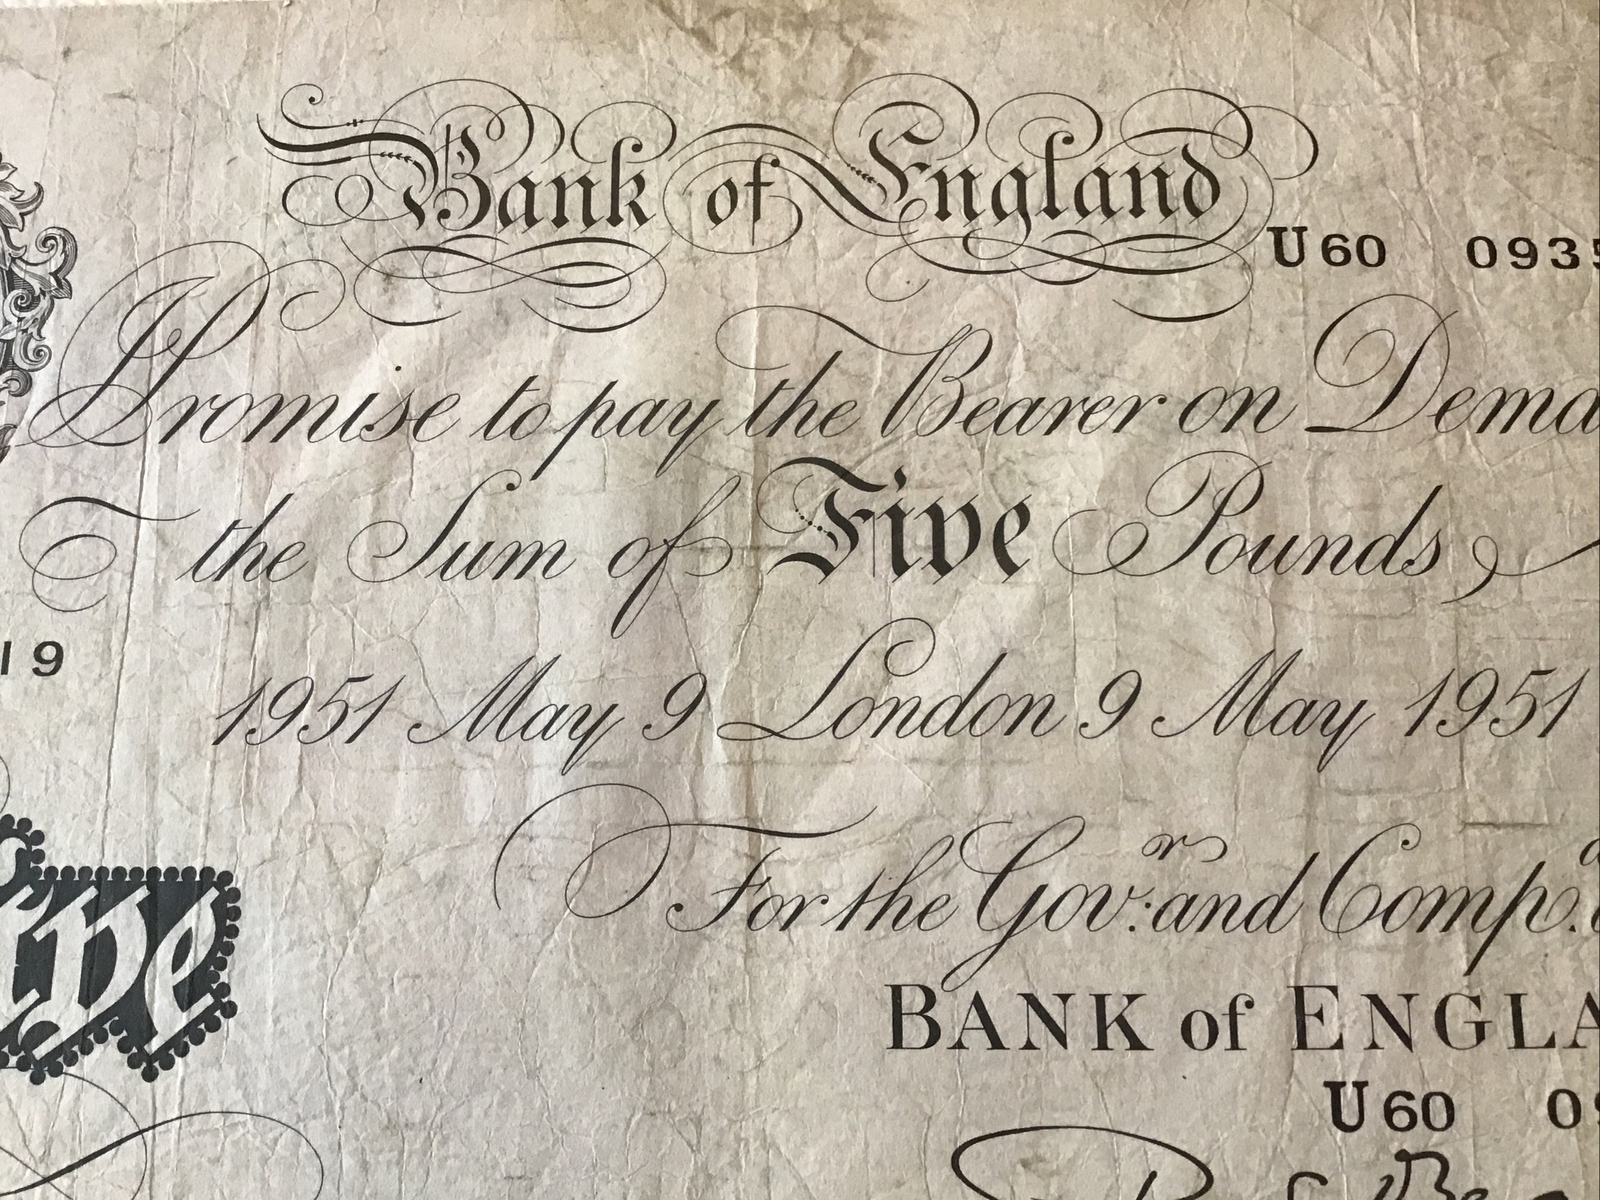 Bank of England
U60 0935
Promise to pay the Bearer on Dema
the Sum of Five Pounds
19
1951 May 9 London 9 May 1951
For the Gov:r and Comp.a
BANK of ENGLA
U60 09